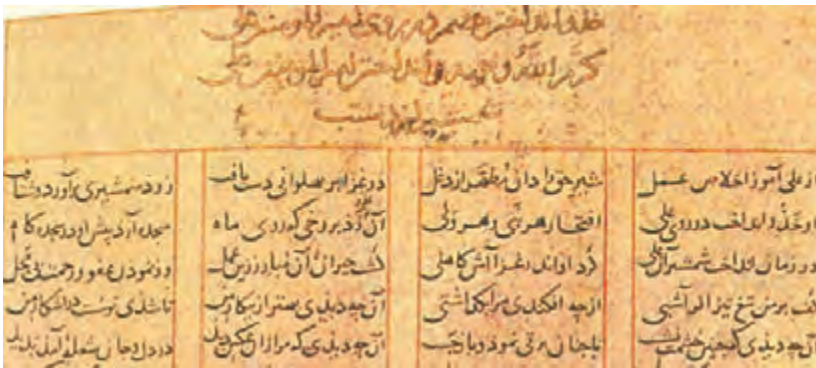 خذو انداختن خصم در روی امیر المومنین علی
کرم الله وجهه و انداختن امیر المومنین علی
شمشیر از دست
از علی آموز اخلاص عمل شیر حق را دان مطهر از دغل در غزا بر پهلوانی دست یافت زود شمشیری برآورد و شتافت
او خذو انداخت در روی علی افتخار هر نبی و هر ولی آن خذو زد بر رخی که روی ماه سجده آرد پیش او در سجده گاه
در زمان انداخت شمشیر آن علی کرد او اندر غزا اش کاهلی گشت حیران آن مبارز زین عمل وز نمودن عفو و رحمت بی محل
گفت بر من تیغ تیز افراشتی از چه افکندی مرا بگذاشتی آن چه دیدی بهتر از پیکار من تا شدی تو سست در اشکار من
آن چه دیدی که چنین خشمت نشست تا چنان برقی نمود و باز جست آن چه دیدی که مرا زان عکس دید در دل و جان شعله آمد پدید